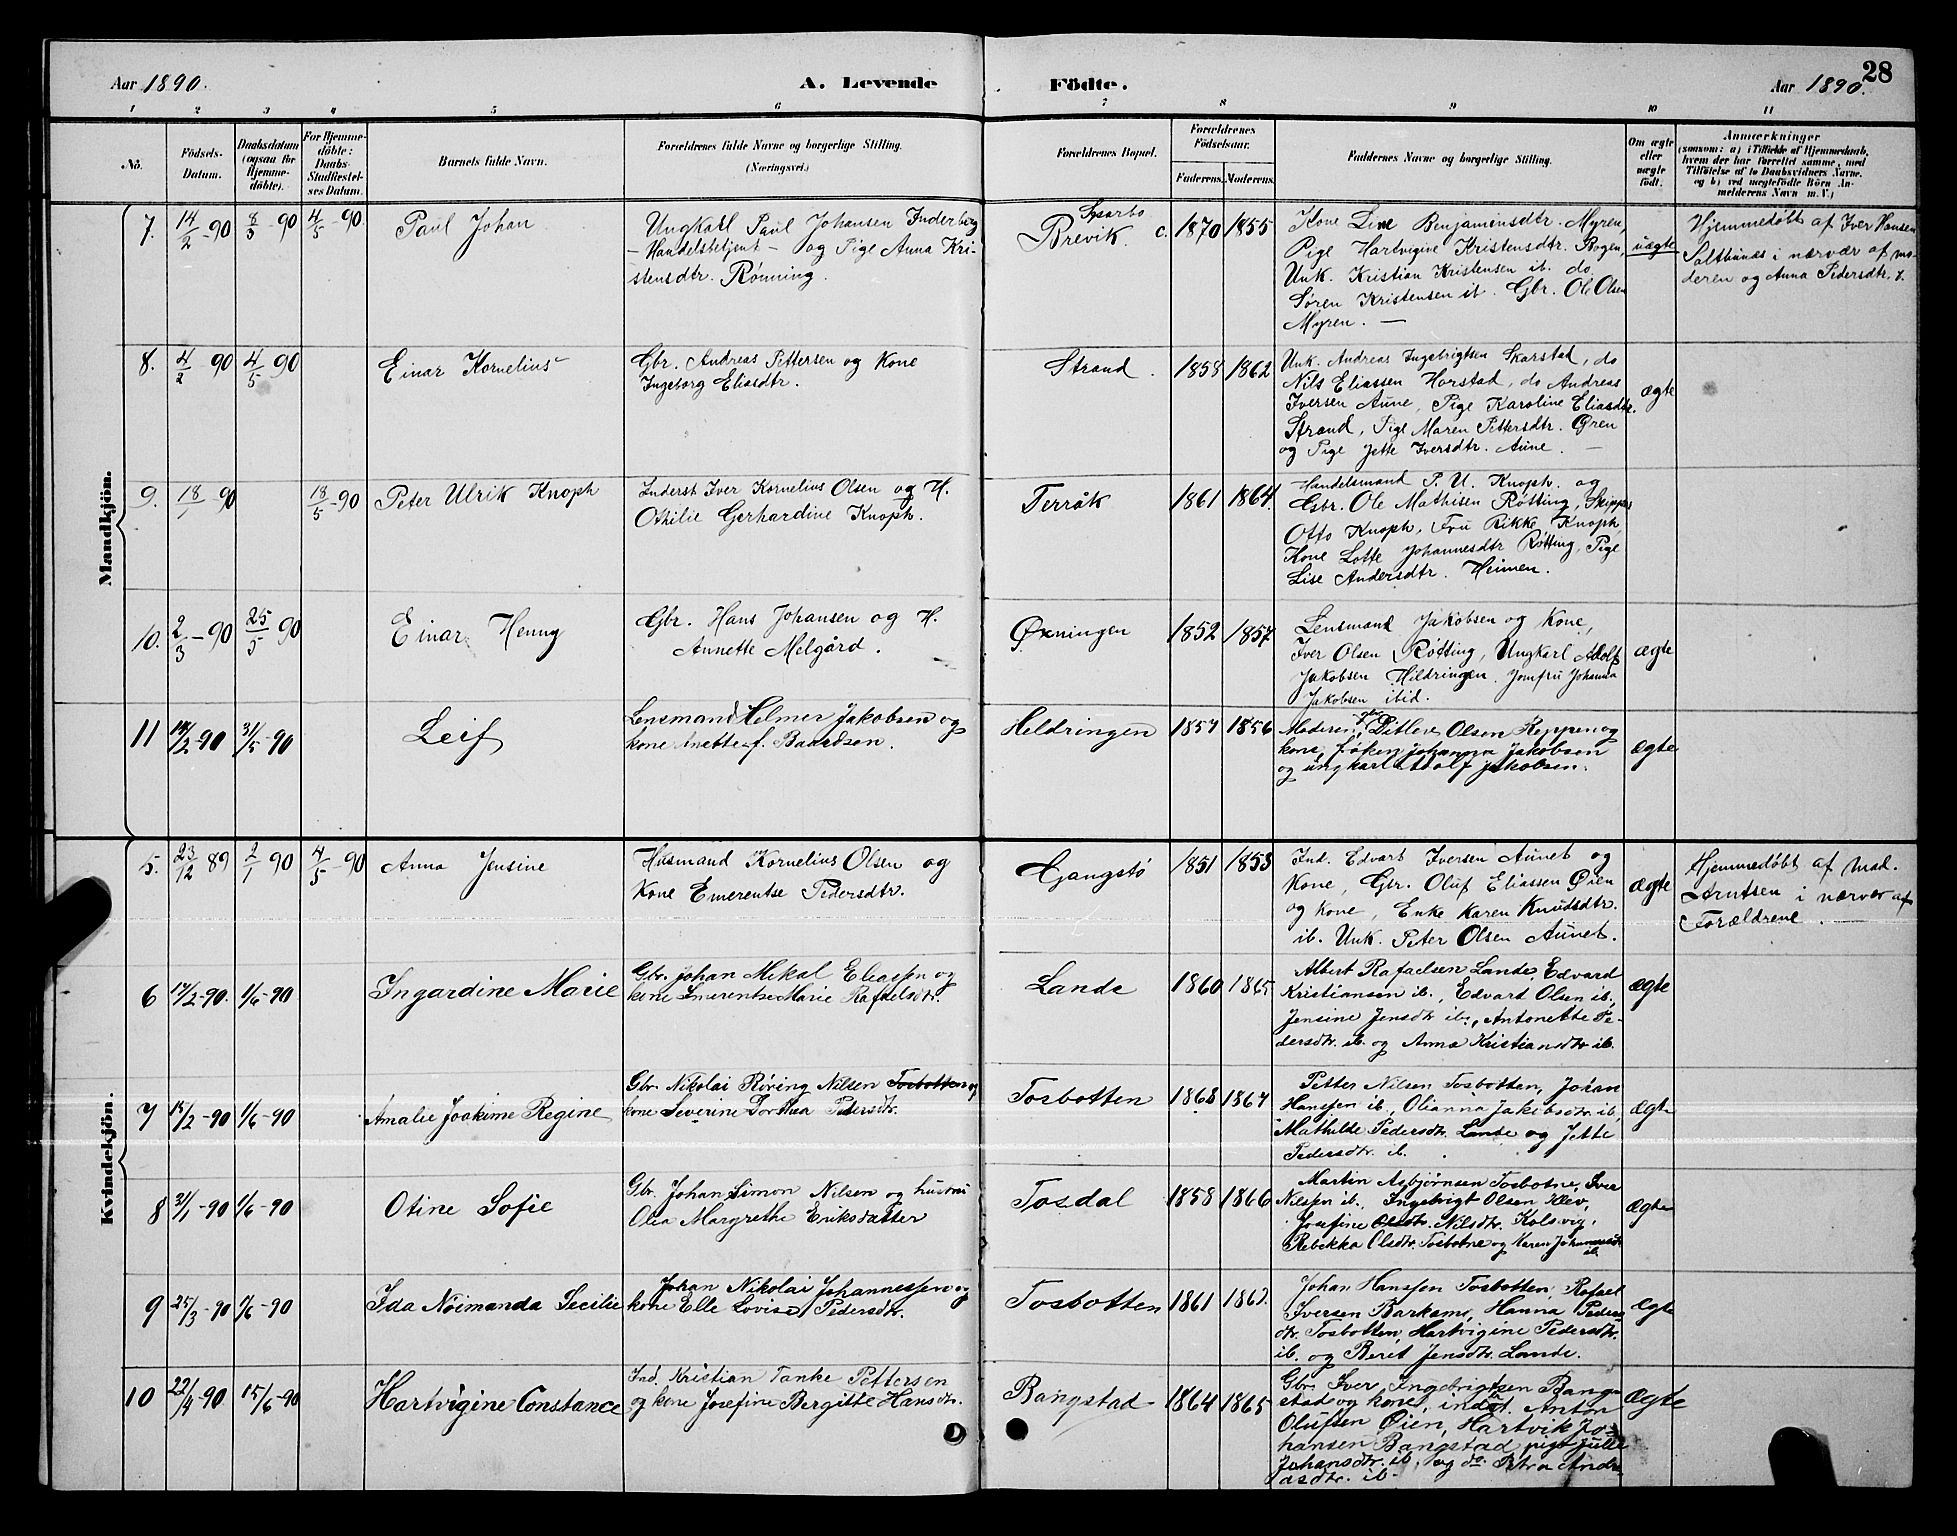 28
Aar 1890.
A. Levende
Födte.
Aar 1890.
1 2 3 4 5 6 7 8 9 10 11
No.
Födsels-
Datum.
Daabsdatum
(ogsaa for
Hjemme-
döbte).
For Hjemme-
döbte:
Daabs-
Stadfæstel-
ses Datum.
Barnets fulde Navn.
Forældrenes fulde Navne og borgerlige Stilling.
(Næringsvei.)
Forældrenes Bopæl.
Forældrenes
Födselsaar.
Faderens. Moderens.
Faddernes Navne og borgerlige Stilling.
Om ægte
eller
uægte
födt.
Anmærkninger
(saasom: a) i Tilfælde af Hjemmedaab,
hvem der har forrettet samme, med
Tilföielse af to Daabsvidners Navne.
og b) ved uægtefödte Börn An-
melderens Navn m. V.)
Mandkjön.
7. 14/2-90 8/3-90 4/5-90
Paul Johan
Ungkarl Paul Johansen Inderberg
- Handelsbetjent - og Pige Anna Kri-
stensdtr. Rønning.
Brevik
1870 1855
Kone Line Benjaminsdtr. Myren,
Pige Hartvigine Kristensdtr. Bogen,
Unk. Kristian Kristensen ib. do
Søren Kristensen ib. Gbr. Ole Olsen
Myren. —
uægte
Hjemmedøbt af Iver Hansen
i nærvær af mo-
deren og Anna Pedersdtr.
8. 4/2 90 4/5 90
Einar Kornelius
Gbr. Andreas Pettersen og Kone
Ingeborg Eliasdtr.
Strand.
1858 1862
Unk. Andreas Ingebrigtsen Skarstad, do
Nils Eliassen Horstad, do Andreas
Iversen Aune, Pige Karoline Eliasdtr.
Strand, Pige Maren Pettersdtr. Øren
og Pige Jette Iversdtr. Aune. —
ægte
9. 18/1 90 18/5-90
Peter Ulrik Knoph
Inderst Iver Kornelius Olsen og H.
Othilie Gerhardine Knoph.
Terråk
1861 1864.
Handelsmand P. U. Knoph. og
Gbr. Ole Mathisen Røtting, Skipper
Otto Knoph, Fru Rikke Knoph,
Kone Lotte Johannesdtr Røtting, Pige
Lise Andersdtr. Heimen.
10. 2/3-90 25/5 90
Einar Henny
Gbr. Hans Johansen og H.
Annette Melgård.
Øxningen
1852 1857
Lensmand Jakobsen og Kone,
Iver Olsen Røtting, Ungkarl Adolf
Jakobsen Hildringen. Jomfru Johanna
Jakobsen ibid.
ægte
11 31/5-90
Leif
Lensmand Helmer Jakobsen og
kone Anette f. Baardsen.
Heldringen
1857 1856
Moderen, Ditlev Olsen Reppen og
kone, frøken Johanna Jakobsen
og ungkarl Adolf Jakobsen.
ægte
Kvindekjön.
5. 23/12 89 2/1 90 4/5-90
Anna Jensine
Husmand Kornelius Olsen og
Kone Emerentse Pedersdtr.
Gangstø
1851 1853
Ind. Edvart Iversen Aunet og
Kone, Gbr. Oluf Eliassen Øien
og kone, Enke Karen Knudsdtr.
ib. Unk. Peter Olsen Aunet.
ægte
Hjemmedøbt af mad.
Arntsen i nærvær af
Forældrene.
6 17/2-90. 1/6-90
Ingardine Marie
Gbr. Johan Mikal Eliassen og
kone Emerentse Marie Rafaelsdtr.
Lande
1860 1865
Albert Rafaelsen Lande, Edvard
Kristiansen ib., Edvart Olsen ib.,
Jensine Jensdtr ib., Antonette Pe-
dersdtr. ib. og Anna Kristiansdtr ib.
ægte
7 15/2-90 1/6-90
Amalie Joakime Regine
Gbr. Nikolai Røring Nilsen Tosbotten og
kone Severine Dorthea Pedersdtr.
Tosbotten
1868 1867
Petter Nilsen Tosbotten, Johan
Hanssen ib, Olianna Jakobsdtr. ib,
Mathilde Pedersdtr. Lande og Jette
Pedersdtr. ib.
ægte
8 31/1-90 1/6-90
Otine Sofie
Gbr. Johan Simon Nilsen og hustru
Olea Margrethe Eriksdatter
Tosdal
1858 1866
Martin Asbjørnsen Tosbotne, Iver
Nilssen ib., Ingebrigt Olsen
Josefine Olsdtr. Nilsdtr. Kolsvig,
Rebekka Olsdtr. Tosbotne og Karen Johannesdtr
ib.
ægte
9 25/3-90 1/6-90
Ida Nöimanda Secilie
Johan Nikolai Johannessen og
kone Elle Lovise Pedersdtr.
Tosbotten
1861 1863.
Johan Hanssen Tosbotten, Rafael
Iversen Barkems, Hanna Peders-
dtr. Tosbotten, Hartvigine Pedersdtr.
ib. og Beret Jensdtr. Lande.
ægte
10 22/4-90 15/6-90
Hartvigine Constance
Ind. Kristian Tanke Pettersen
og kone Josefine Bergitte Hansdtr.
Bangstad
1864 1865
Gbr. Iver Ingebrigtsen Bang-
stad og kone, inds. Anton
Olufsen Øien, Hartvik Jo-
hansen Bangstad, pige Julle
Johansdtr. ib. og do. Petra Andre-
asdtr. ib.
ægte